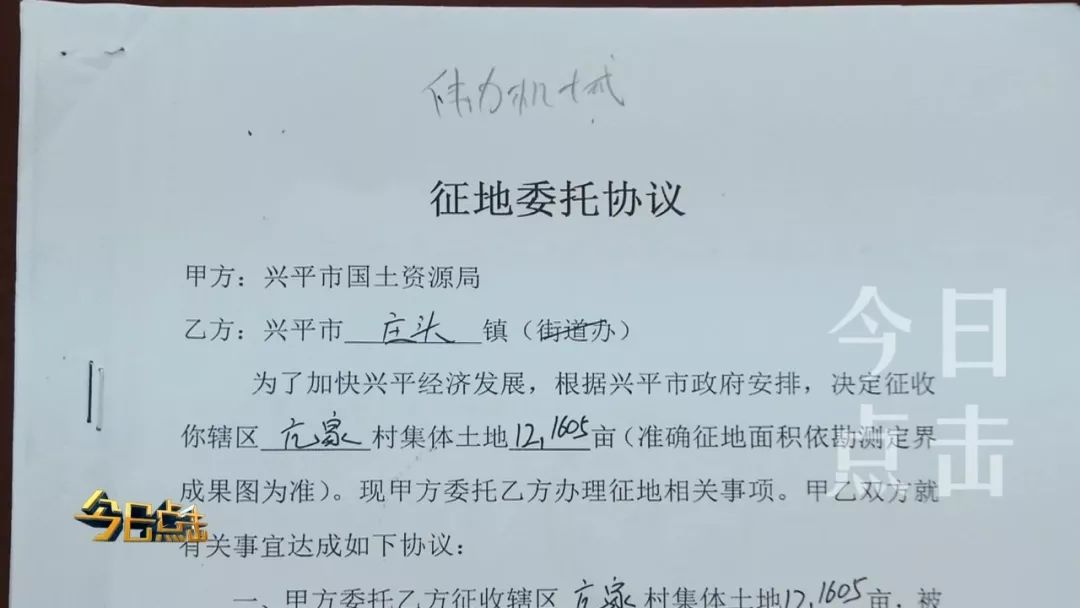 伟力机械
征地委托协议
甲方：兴平市国土资源局
乙方：兴平市庄头镇（街道办）
为了加快兴平经济发展，根据兴平市政府安排，决定征收
你辖区亢家村集体土地12.1605亩（准确征地面积依勘测定界
成果图为准）。现甲方委托乙方办理征地相关事项。甲乙双方就
有关事宜达成如下协议：
一、甲方委托乙方征收辖区亢家村集体土地12.1605亩，被
今日
点击
今日点击